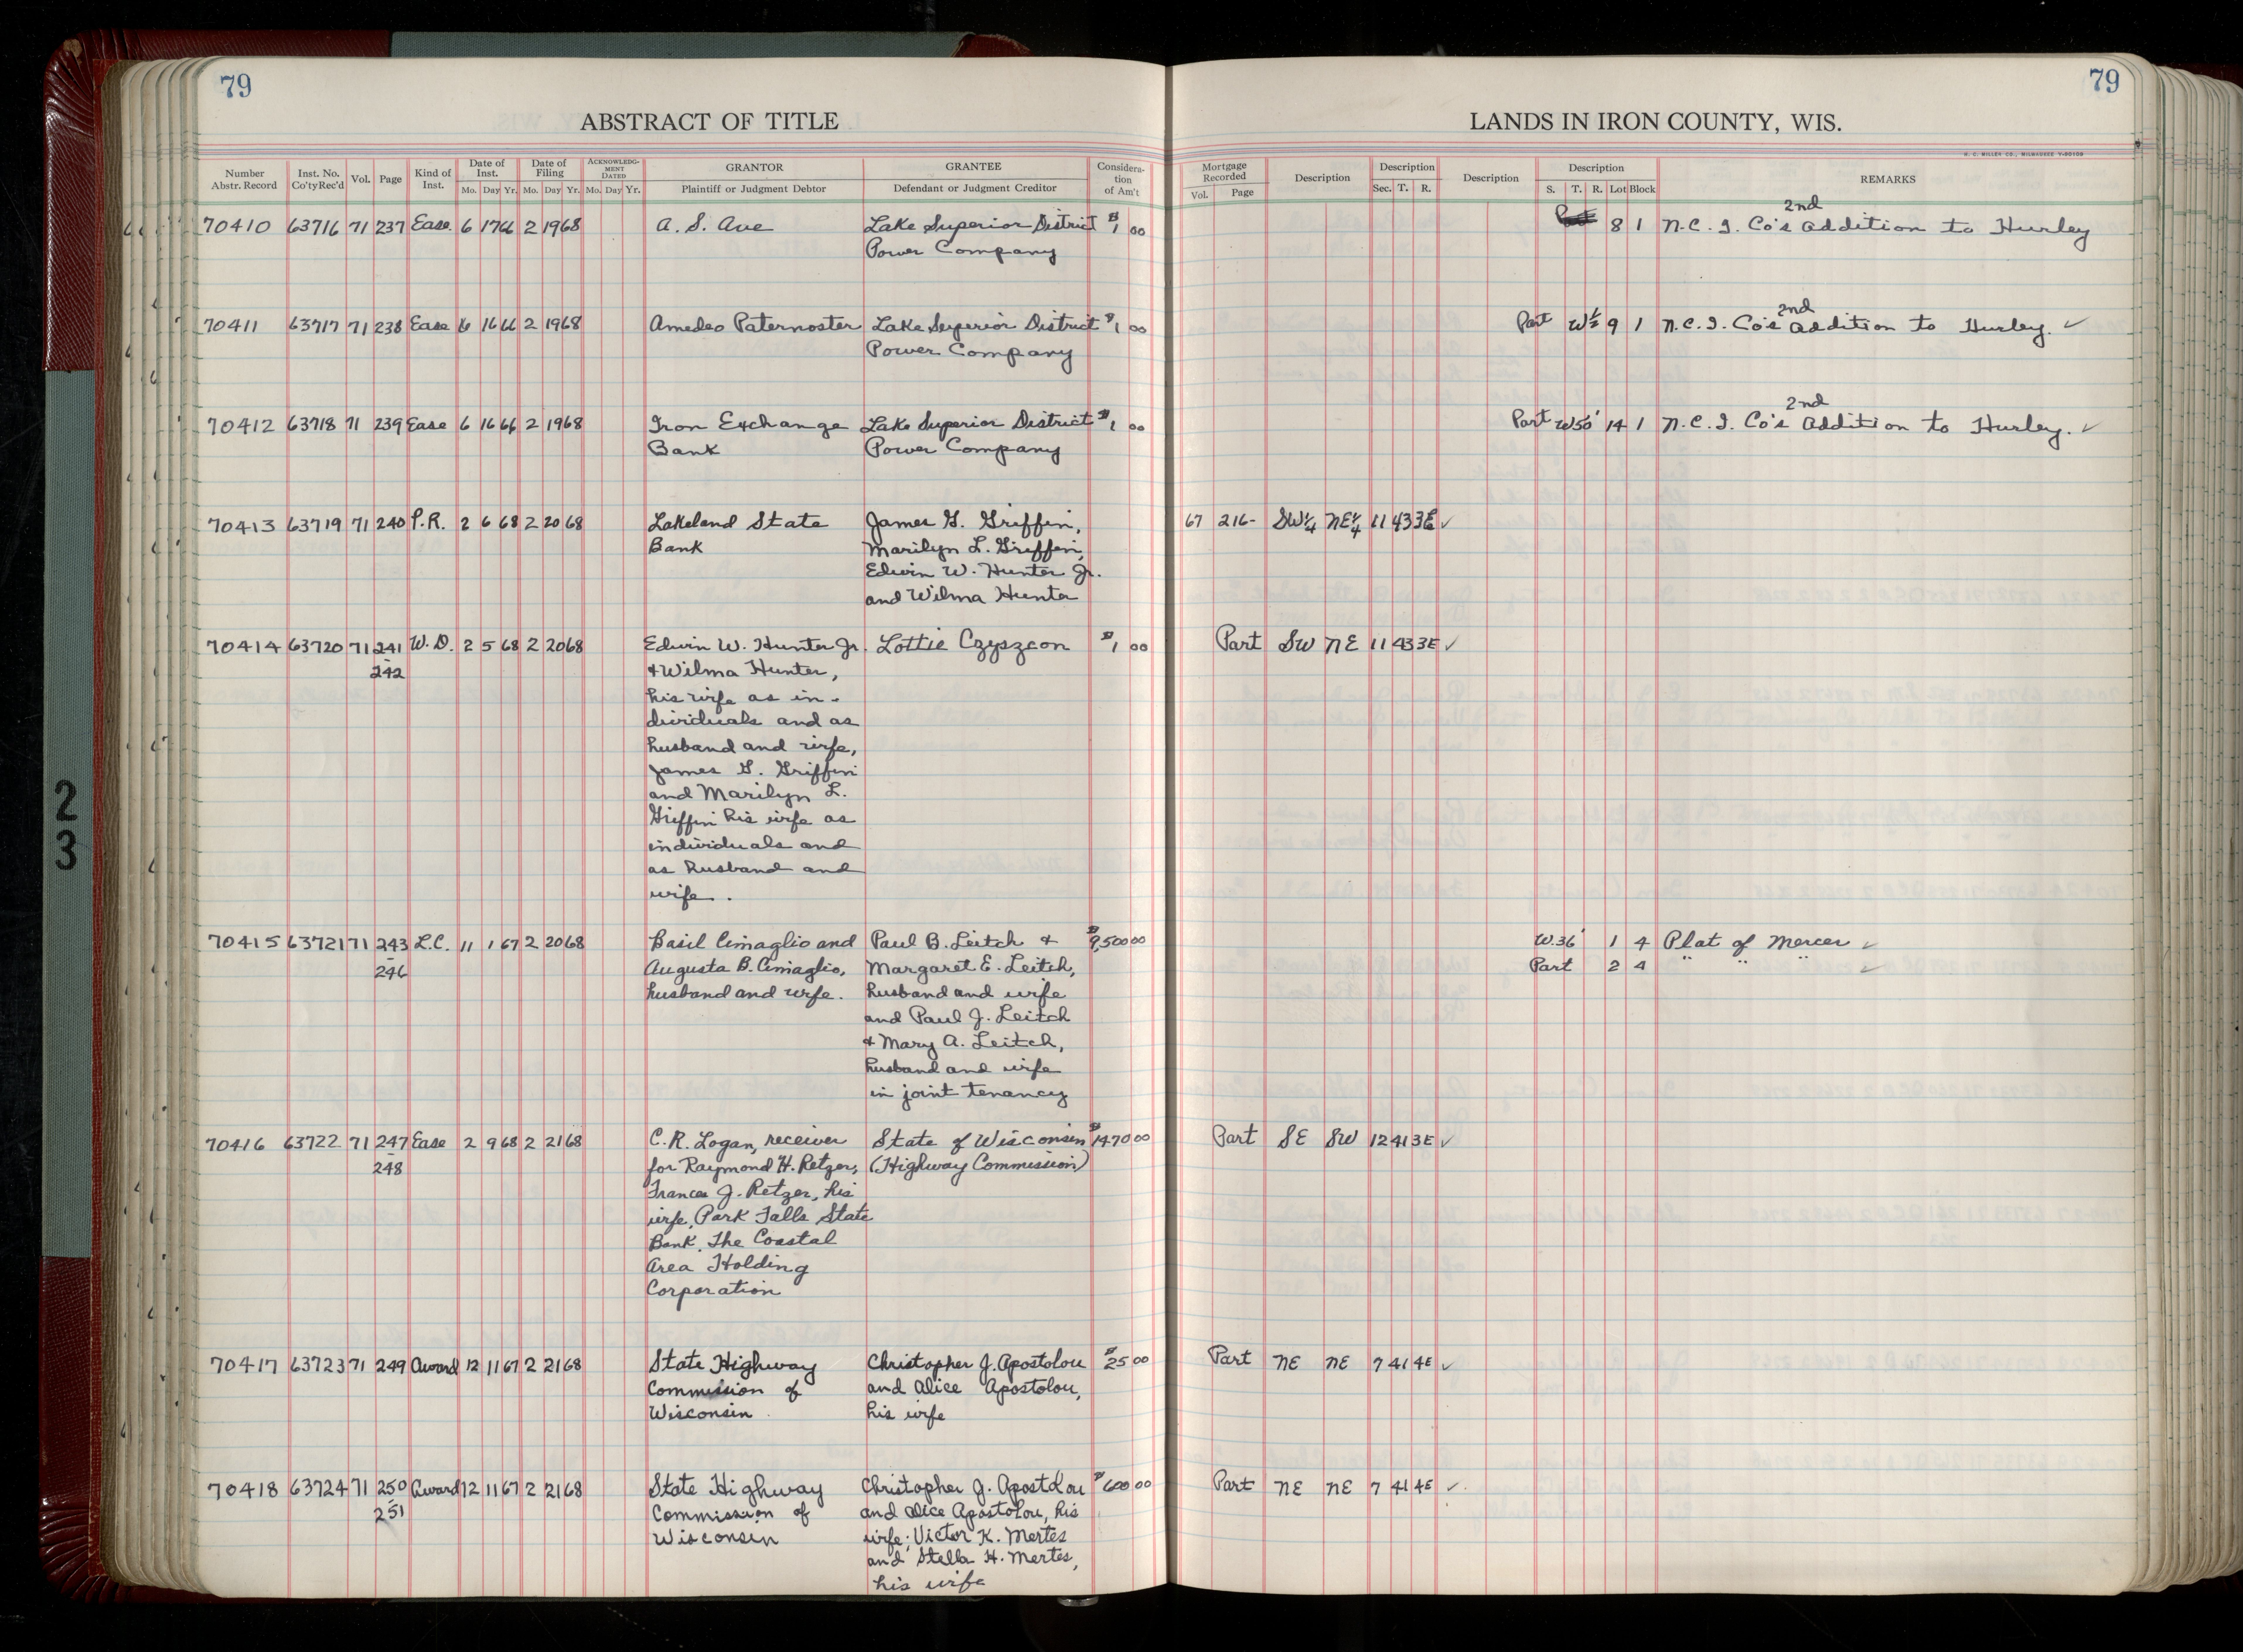 79
79
ABSTRACT OF TITLE
LANDS IN IRON COUNTY, WIS.
H. C. MILLER CO., MILWAUKEE
Number Abstr. Record Inst. No. Co'ty Rec'd Vol. Page Kind of Inst. Date of Inst. Mo. Day Yr. Date of Filing Mo. Day Yr. ACKNOWLEDGMENT DATED Mo. Day Yr. GRANTOR Plaintiff or Judgment Debtor GRANTEE Defendant or Judgment Creditor Considera-tion of Am't Mortgage Recorded Vol. Page Description Description Sec. T. R. Description Description S. T. R. Lot Block REMARKS
2nd
70410 63716 71 237 Ease. 6 17 66 2 19 68 A. S. Ave Lake Superior District $1 00 8 1 N.C.I. Co's Addition to Hurley
Power Company
2nd
70411 63717 71 238 Ease 6 16 66 2 19 68 Amedeo Paternoster Lake Superior District $1 00 Part W½ 9 1 N.C.I. Co's Addition to Hurley. ✓
Power Company
2nd
70412 63718 71 239 Ease 6 16 66 2 19 68 Iron Exchange Lake Superior District $1 00 Part W50' 14 1 N.C.I. Co's Addition to Hurley. ✓
Bank Power Company
70413 63719 71 240 P.R. 2 6 68 2 20 68 Lakeland State James G. Griffin, 67 216- SW¼ NE¼ 11 43 3E ✓
Bank Marilyn L. Griffin,
Edwin W. Hunter Jr.
and Wilma Hunter
70414 63720 71 241 W.D. 2 5 68 2 20 68 Edwin W. Hunter Jr. Lottie Czyszcon $1 00 Part SW NE 11 43 3E ✓
-242 & Wilma Hunter,
his wife as in-
dividuals and as
husband and wife,
James G. Griffin
and Marilyn L.
Griffin his wife as
individuals and
as husband and
wife.
70415 63721 71 243 L.C. 11 1 67 2 20 68 Basil Cimaglio and Paul B. Leitch & $9,500 00 W.36' 1 4 Plat of Mercer ✓
-246 Augusta B. Cimaglio, Margaret E. Leitch, Part 2 4 " " " ✓
husband and wife. husband and wife
and Paul J. Leitch
& Mary A. Leitch,
husband and wife
in joint tenancy
70416 63722 71 247 Ease 2 9 68 2 21 68 C.R. Logan, receiver State of Wisconsin $1470 00 Part SE SW 12 41 3E ✓
-248 for Raymond H. Retzer, (Highway Commission)
Frances J. Retzer, his
wife, Park Falls State
Bank, The Coastal
Area Holding
Corporation
70417 63723 71 249 Award 12 11 67 2 21 68 State Highway Christopher J. Apostolou $25 00 Part NE NE 7 41 4E ✓
Commission of and Alice Apostolou,
Wisconsin his wife
70418 63724 71 250 Award 12 11 67 2 21 68 State Highway Christopher J. Apostolou $600 00 Part NE NE 7 41 4E ✓
-251 Commission of and Alice Apostolou, his
Wisconsin wife; Victor K. Mertes
and Stella H. Mertes,
his wife
23